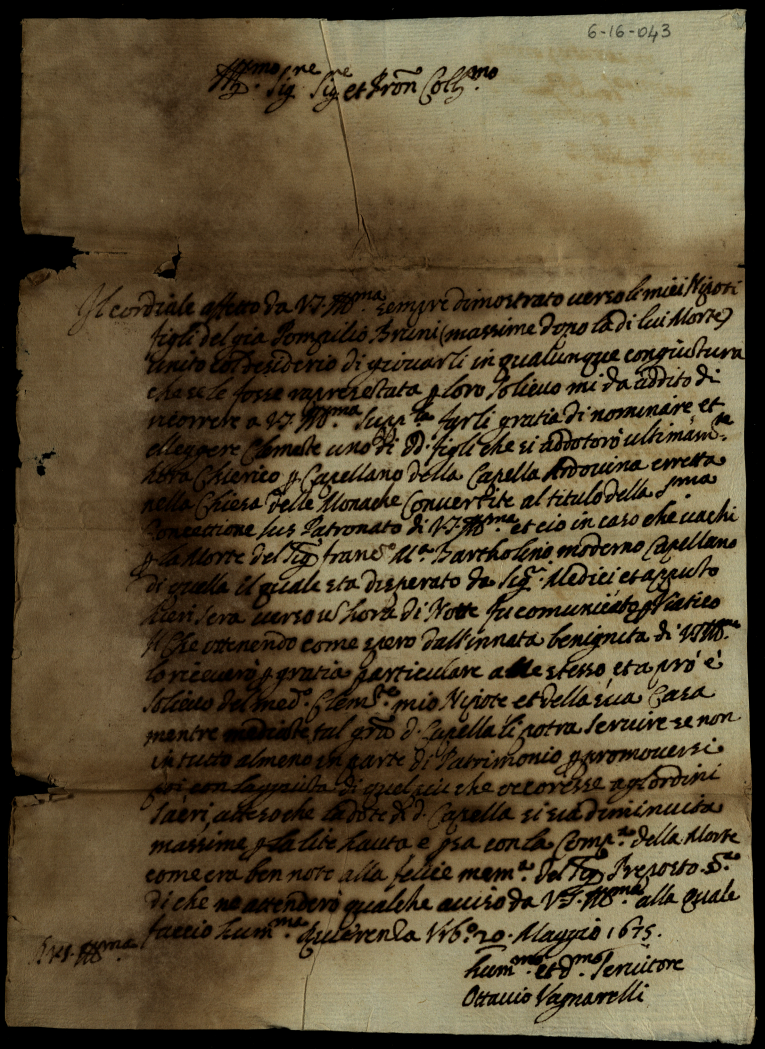 6-16-043
Ill.mo Sig.re Sig.re et Pron Coll.mo
Il cordiale affetto da V.S. Ill.ma sempre dimostrato verso li miei Nipoti
figli del gia Pompilio Bruni (massime dopo la di lui Morte)
unito col desiderio di giovarli in qualunque congiuntura
che se le fosse rapresetata p loro solievo mi da addito di
ricorrere a V.S. Ill.ma farli gratia di nominare et
elleggere Clemete uno di dd. figli che si addotorò ultimam.te
hora Chierico p Capellano della Capella Ardovina erretta
nella Chiesa delle Monache Convertite al titulo della S.ma
Concettione Ius Patronato di V.S. Ill.ma et cio in caso che vachi
p la Morte del Sig. Franc.o M.a Bartholino moderno Capellano
di quella il quale sta disperato da Sig.ri Medici et apputo
hieri sera verso hora di Notte fu comunicato p Viatico
Il che ottenendo come spero dall'innata benignita di V.S. Ill.ma
lo riceverò p gratia particulare a me stesso et a prò è
solievo del med.o Clem.te mio Nipote et della sua Casa
mentre mediate tal gra d. Capella li potra servire se non
in tutto almeno in parte di Patrimonio p promoversi
poi con di quel più che occoresse agl'ordini
sacri, atteso che la dote di d. Capella si sia diminuita
massime p la lite hauta e psa con la Comp.a della Morte
come era ben noto alla felice mem.a del Sig. Preposto
di che ne attenderò qualche aviso da V.S. Ill.ma alla quale
faccio hum.ma Riverenza Urb.o 20. Maggio 1675.
Di V.S. Ill.ma
Hum.mo et d.mo Servitore
Ottavio Vagnarelli